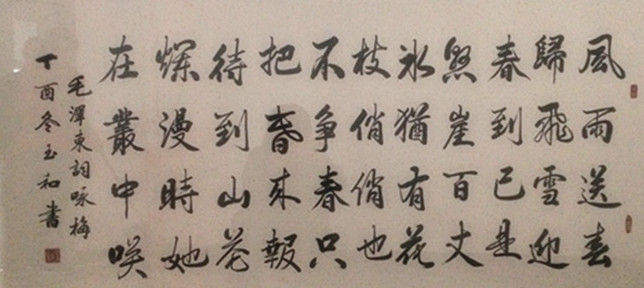 風雨送春
歸飛雪迎
春到已是
懸崖百丈
冰猶有花
枝俏俏也
不争春只
把春来報
待到山花
爛漫時她
在叢中咲
毛澤東詞咏梅
丁酉冬玉和書